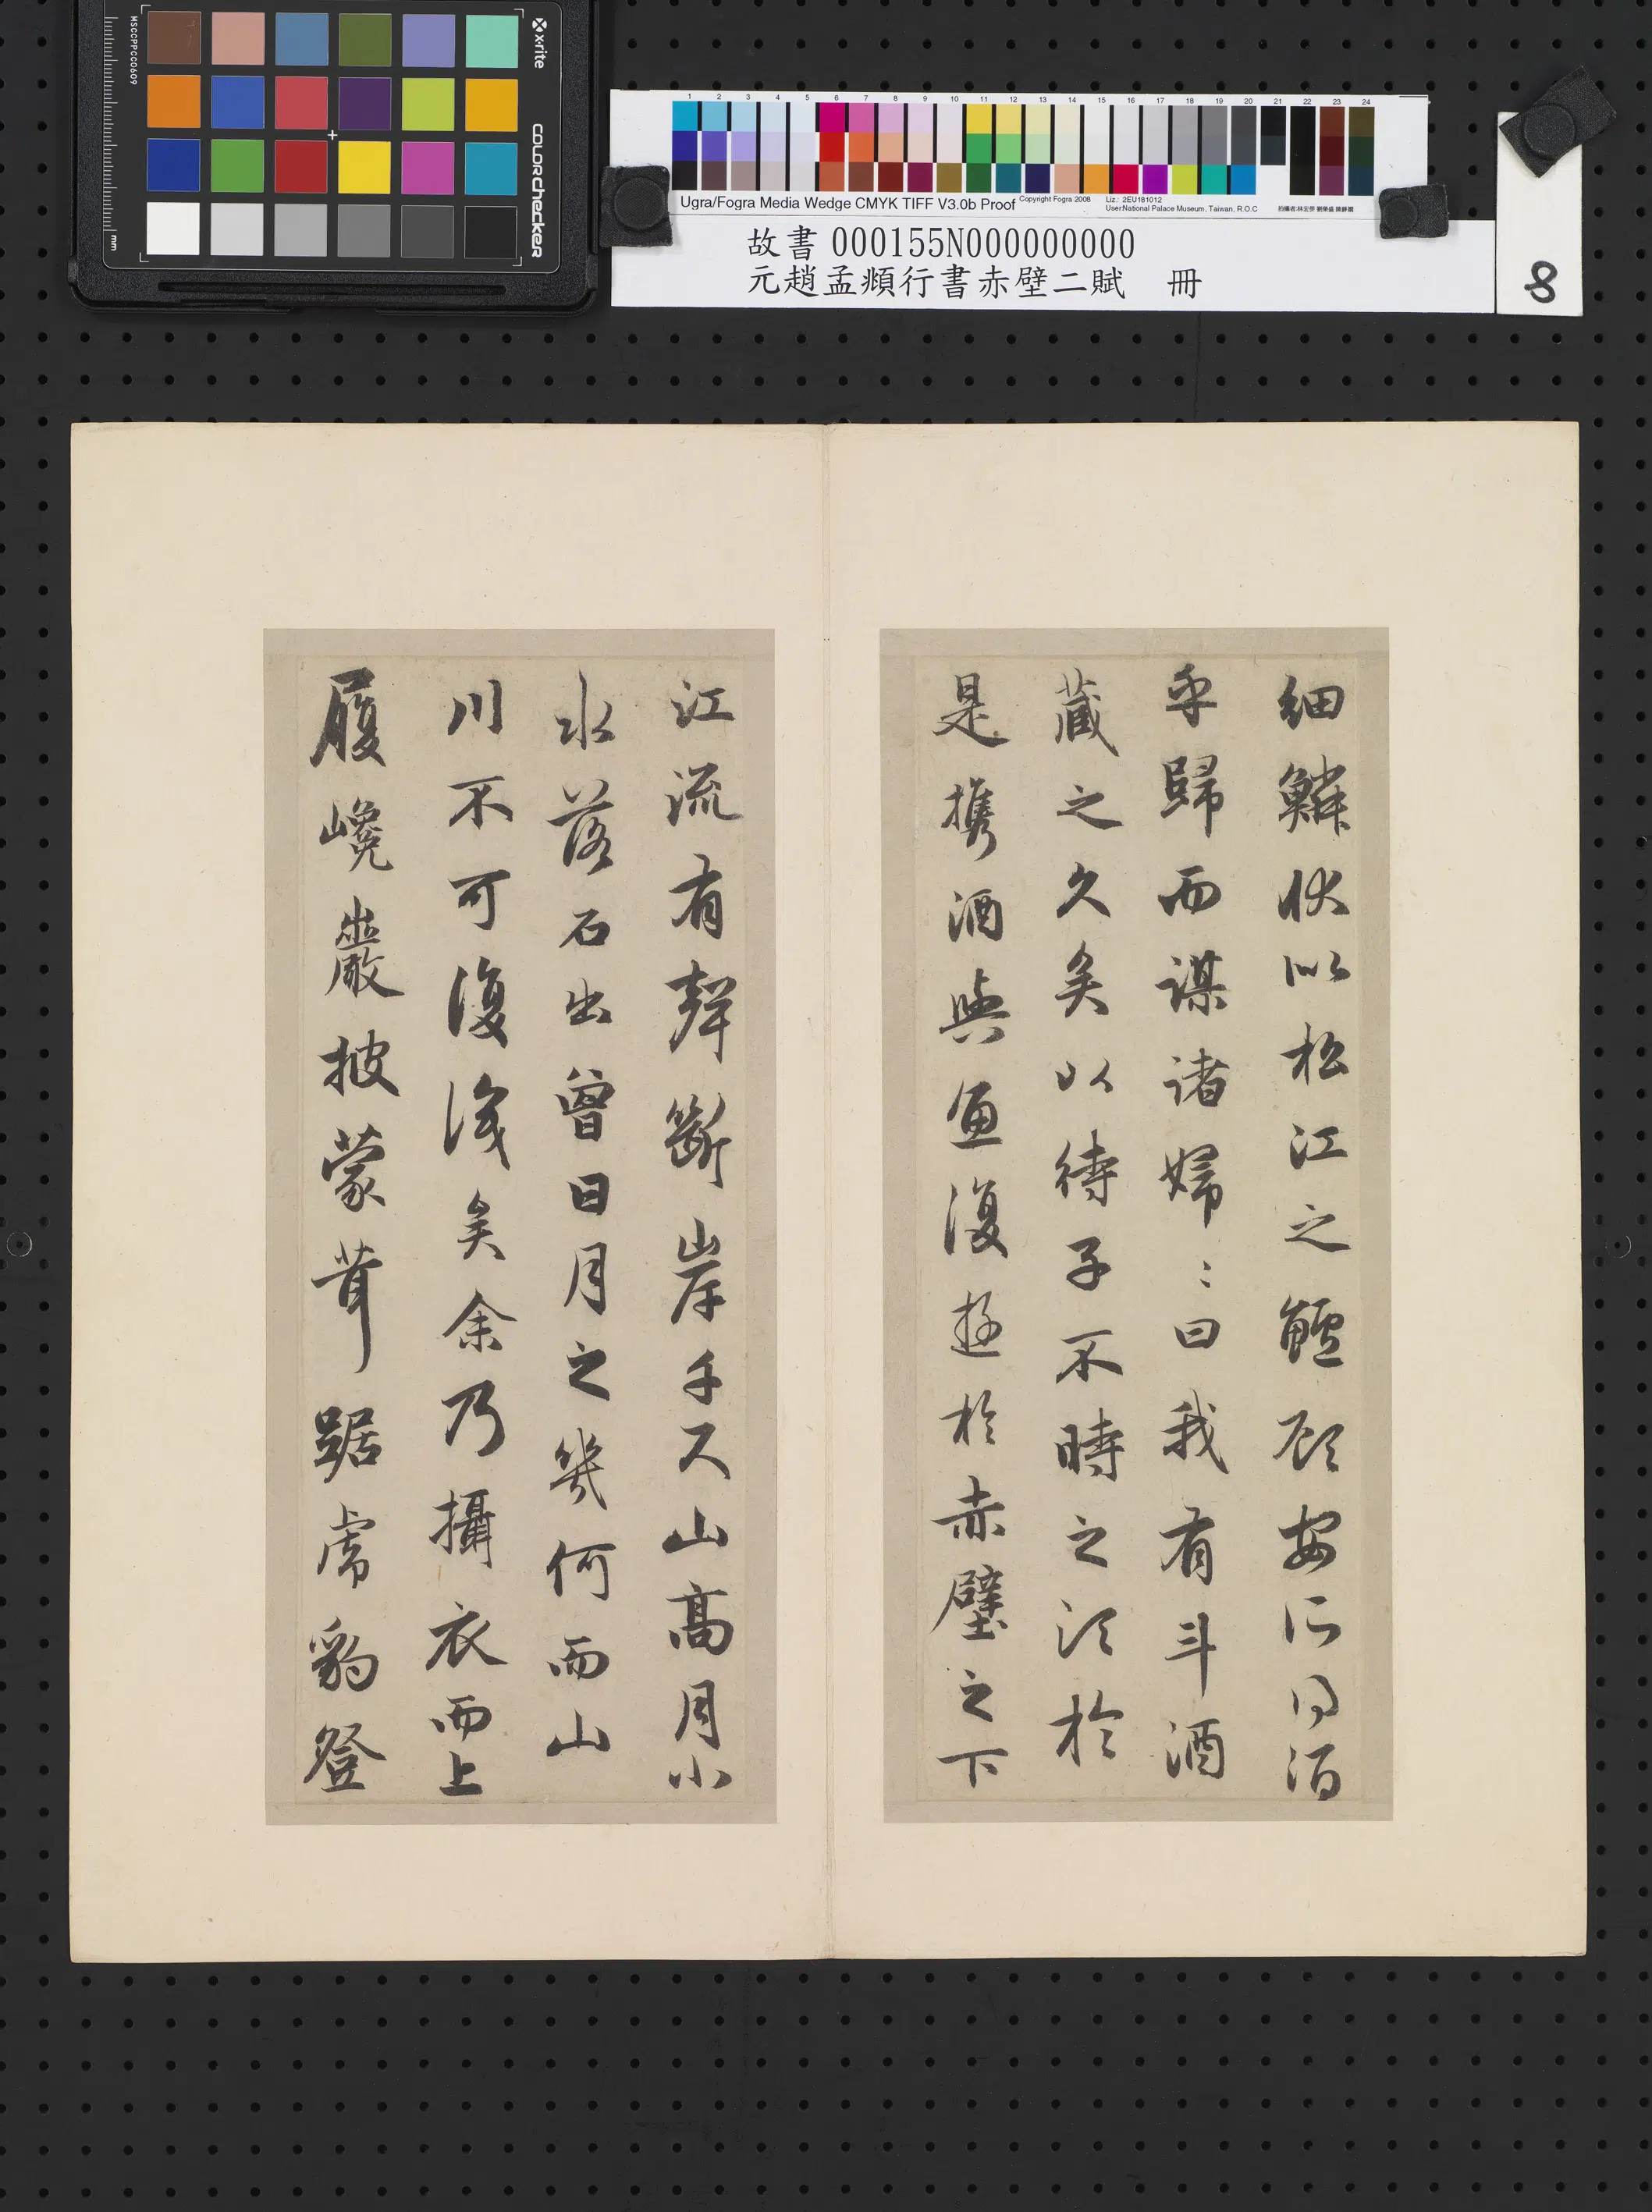 MSCCPPCC0609
x-rite
colorchecker
mm
1 2 3 4 5 6 7 8 9 10 11 12 13 14 15 16 17 18 19 20 21 22 23 24
Ugra/Fogra Media Wedge CMYK TIFF V3.0b Proof
Copyright Fogra 2008
Liz.: 2EU181012
User:National Palace Museum, Taiwan, R.O.C
故書 000155N000000000
元趙孟頫行書赤壁二賦 冊
8
細鱗狀似松江之鱸顧安所得酒
乎歸而謀諸婦〻曰我有斗酒
藏之久矣以待子不時之須於
是携酒與魚復遊於赤壁之下
江流有聲斷岸千尺山高月小
水落石出曾日月之幾何而山
川不可復識矣余乃攝衣而上
履巉巖披蒙茸踞虎豹登